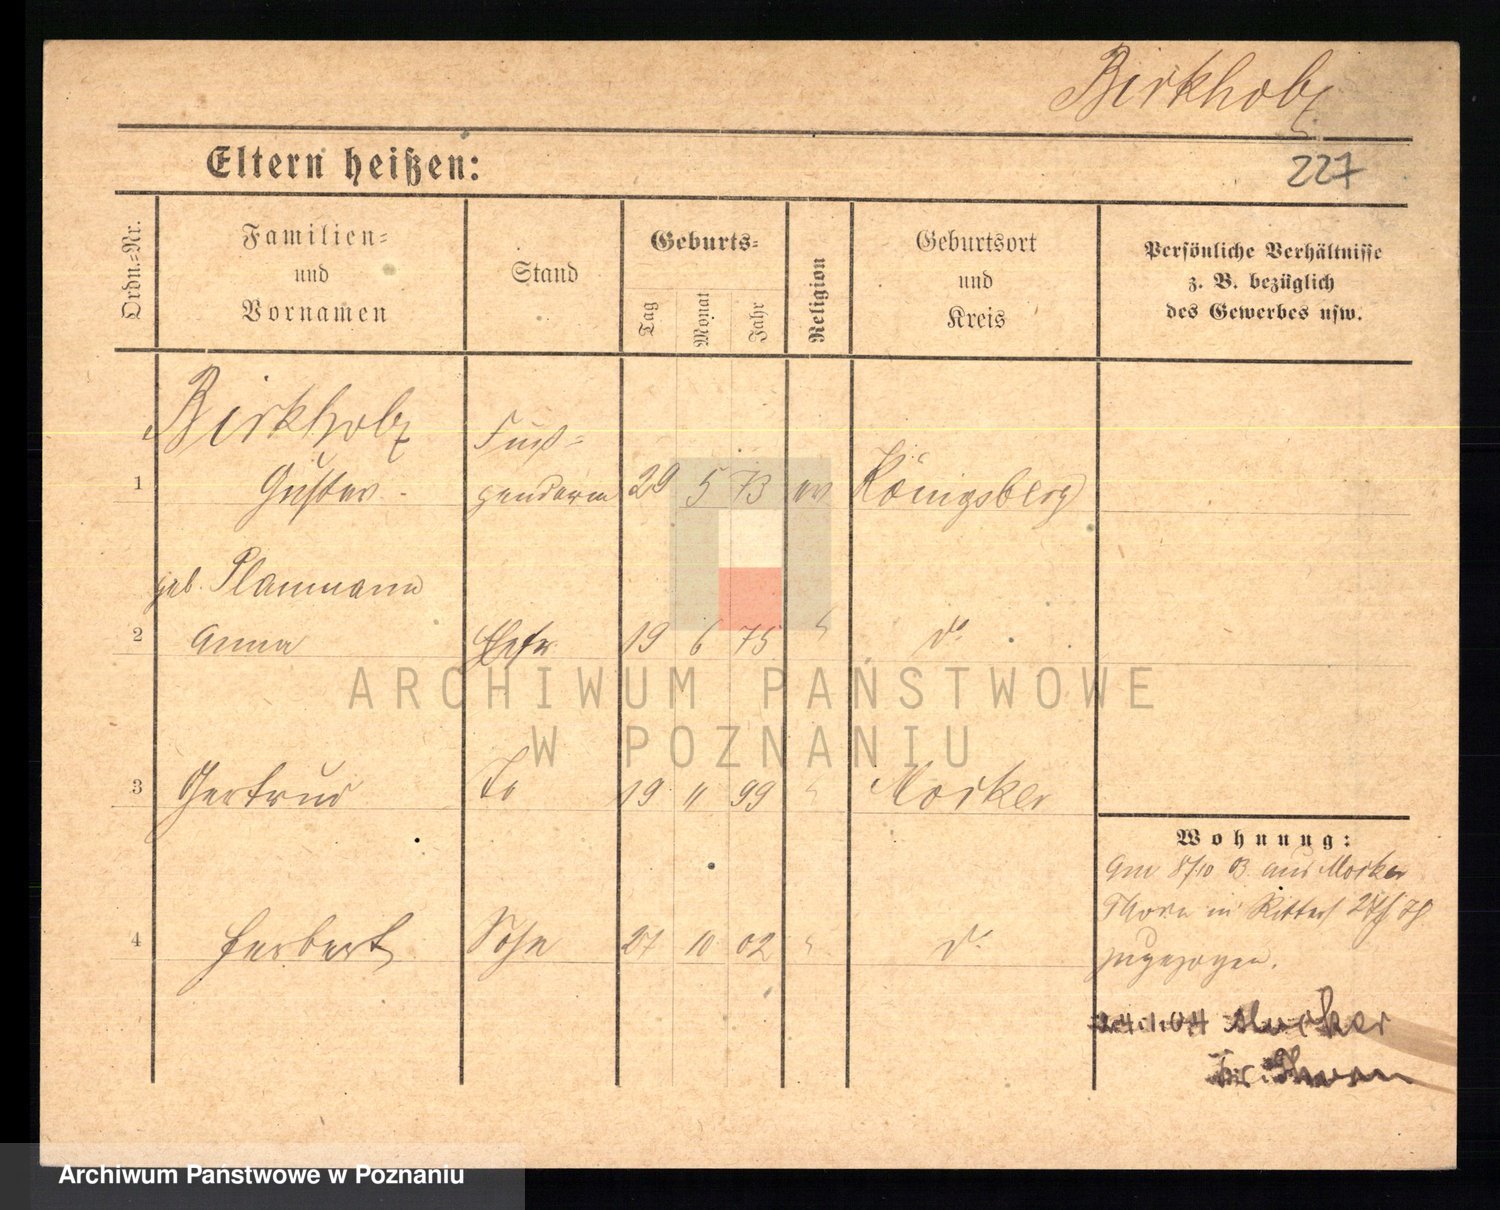 Birkholz
Eltern heißen:
227
Ordn.=Nr.
Familien=
und
Vornamen
Stand
Geburts=
Tag
Monat
Jahr
Religion
Geburtsort
und
Kreis
Persönliche Verhältnisse
z. B. bezüglich
des Gewerbes usw.
Birkholz
Fuß=
1 Gustav gendarm 29 5 73 ev Königsberg
geb. Plaumann
2 Anna Ehefr 19 6 75 " do
3 Gertrud To 19 11 99 " Mocker
4 Herbert Sohn 27 10 02 " do
Wohnung:
Am 8/10 03 aus Mocker
Thorn in Ritterstr
zugezogen.
24.1.04 Mocker
Kr. Thorn
ARCHIWUM PAŃSTWOWE
W POZNANIU
Archiwum Państwowe w Poznaniu